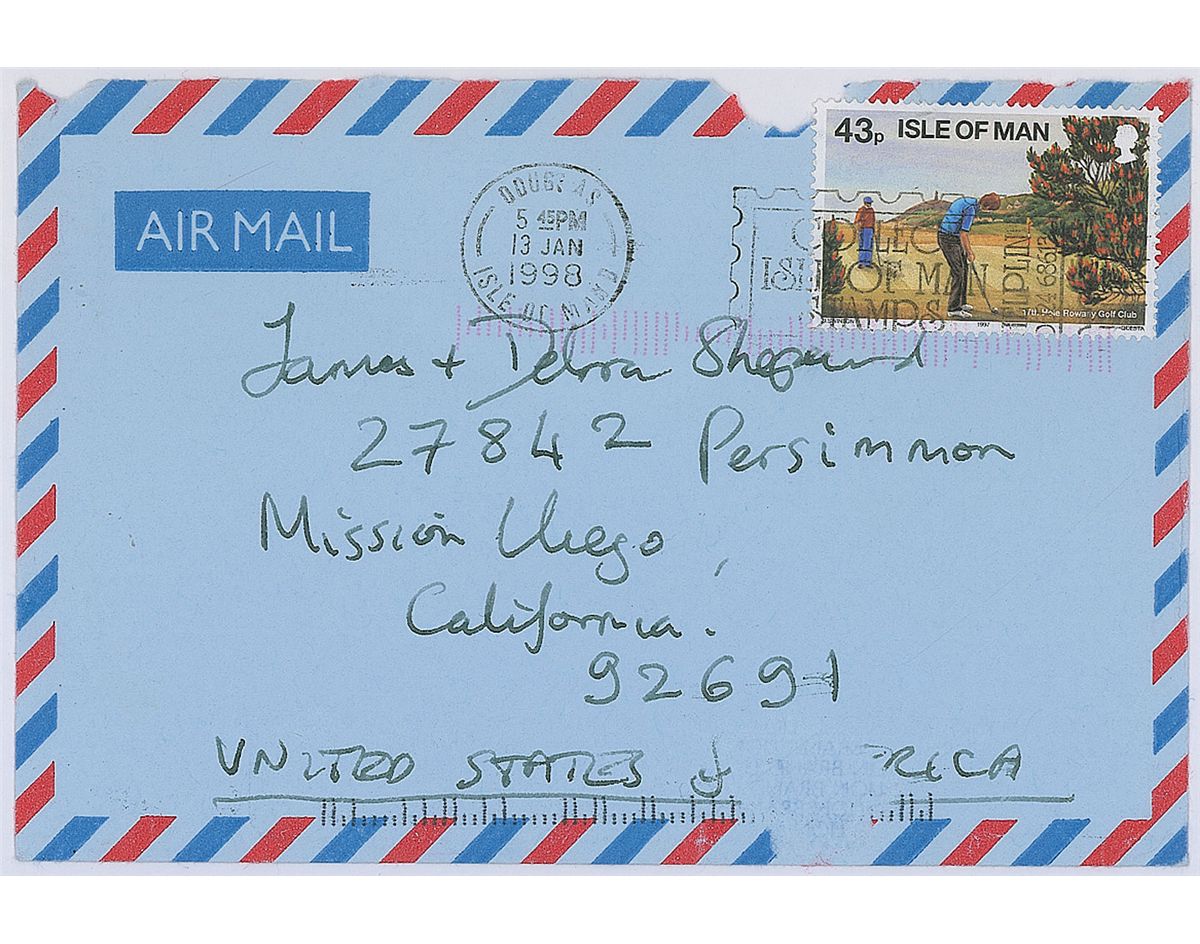 43p ISLE OF MAN
AIR MAIL
DOUGLAS
5 45PM
13 JAN
1998
ISLE OF MAN
COLLECT
ISLE OF MAN
STAMPS
17th Hole Rowany Golf Club
1997
QUESTA
James + Debra Shepard
27842 Persimmon
Mission Viego,
California.
92691
UNITED STATES of RICA